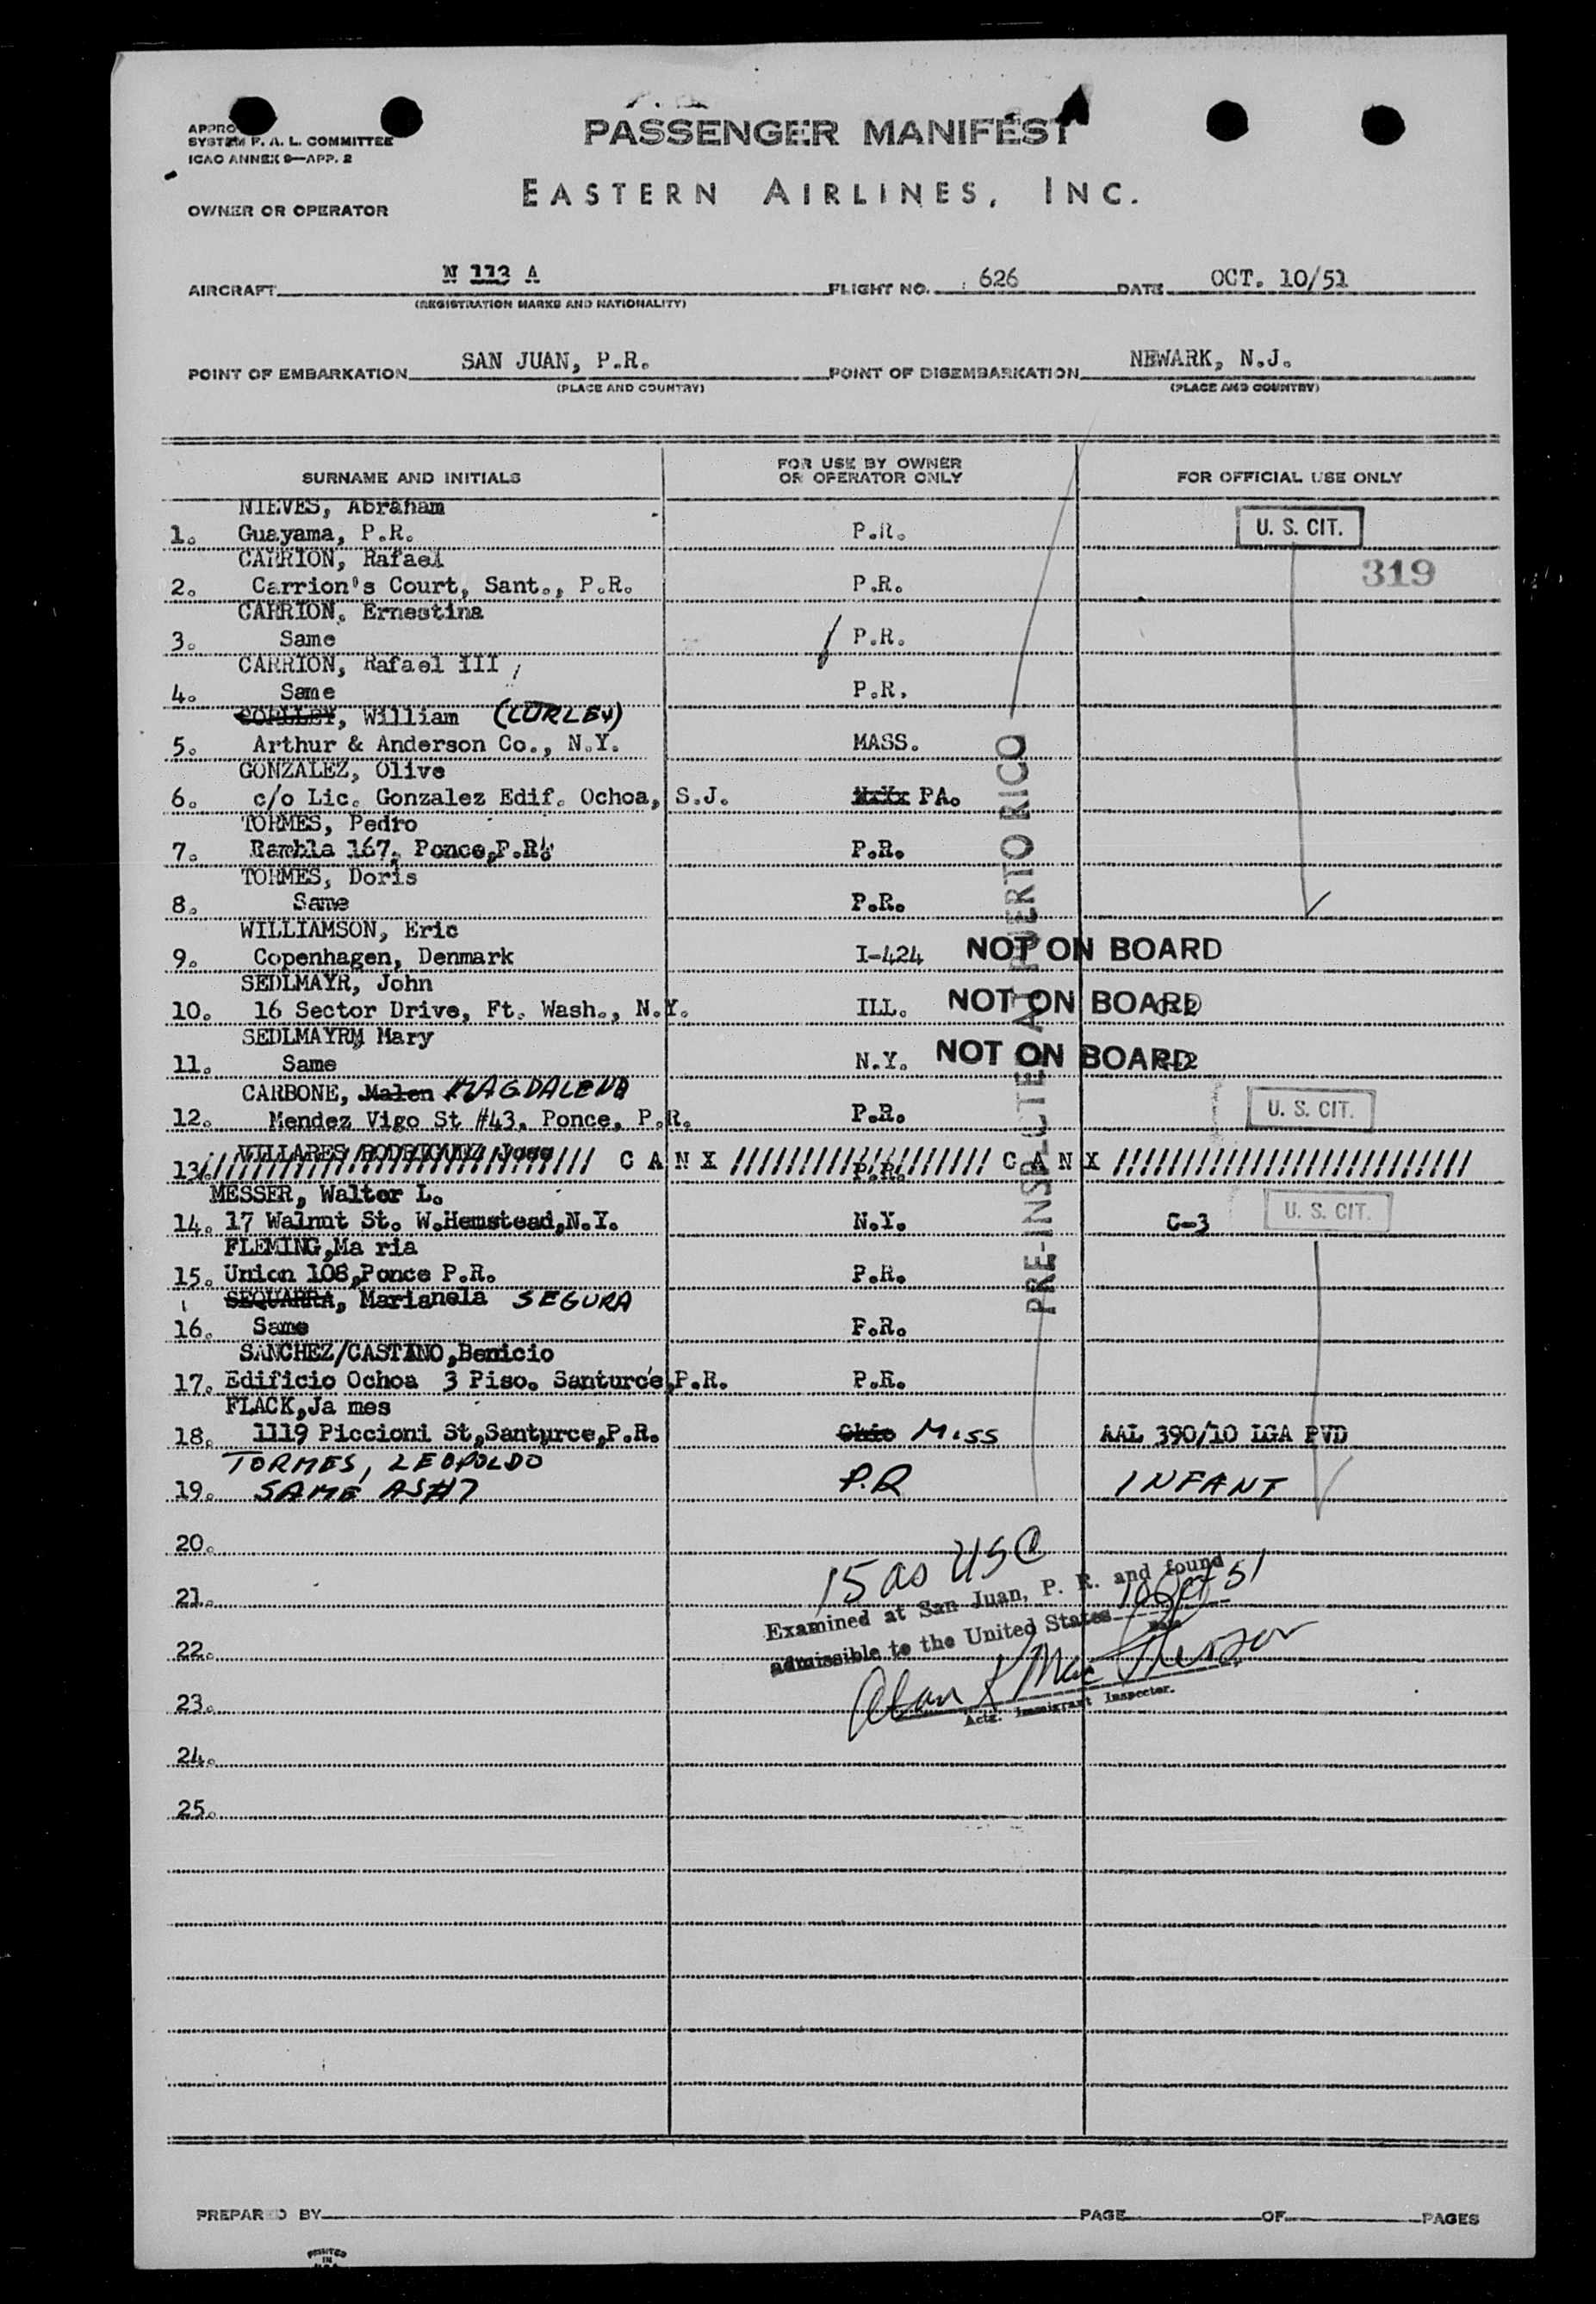 PASSENGER MANIFEST
APPRO
SYSTEM F. A. L. COMMITTEE
ICAO ANNEX 9—APP. 2
EASTERN AIRLINES, INC.
OWNER OR OPERATOR
AIRCRAFT N 113 A FLIGHT NO. 626 DATE OCT. 10/51
(REGISTRATION MARKS AND NATIONALITY)
POINT OF EMBARKATION SAN JUAN, P.R. POINT OF DISEMBARKATION NEWARK, N.J.
(PLACE AND COUNTRY) (PLACE AND COUNTRY)
SURNAME AND INITIALS FOR USE BY OWNER OR OPERATOR ONLY FOR OFFICIAL USE ONLY
NIEVES, Abraham
1. Guayama, P.R. P.R. U. S. CIT.
CARRION, Rafael
2. Carrion's Court, Sant., P.R. P.R. 319
CARRION, Ernestina
3. Same P.R.
CARRION, Rafael III
4. Same P.R.
, William (CURLEY)
5. Arthur & Anderson Co., N.Y. MASS.
GONZALEZ, Olive
6. c/o Lic. Gonzalez Edif. Ochoa, S.J. PA.
TORMES, Pedro
7. Rambla 167, Ponce,P.R. P.R.
TORMES, Doris
8. Same P.R.
WILLIAMSON, Eric
9. Copenhagen, Denmark I-424 NOT ON BOARD
SEDLMAYR, John
10. 16 Sector Drive, Ft. Wash., N.Y. ILL. NOT ON BOARD
SEDLMAYRM Mary
11. Same N.Y. NOT ON BOARD
CARBONE, Malen MAGDALENA
12. Mendez Vigo St #43, Ponce, P.R. P.R. U. S. CIT.
VILLARES RODRIGUEZ Jose
13. C A N X P.R. C A N X
MESSER, Walter L.
14. 17 Walnut St. W.Hemstead,N.Y. N.Y. C-3 U. S. CIT.
FLEMING,Ma ria
15. Union 108,Ponce P.R. P.R.
SEQUARRA, Marianela SEGURA
16. Same P.R.
SANCHEZ/CASTANO,Benicio
17. Edificio Ochoa 3 Piso. Santurce,P.R. P.R.
FLACK,Ja mes
18. 1119 Piccioni St,Santurce,P.R. Ohio MISS AAL 390/10 LGA PVD
TORMES, LEOPOLDO
19. SAME AS#7 P.R INFANT
PRE-INSPECTED AT PUERTO RICO
20.
15 as USC
21.
Examined at San Juan, P. R. and found
admissible to the United States 10 Oct 51
Date
22.
Alan K MacPherson
23.
Actg. Immigrant Inspector.
24.
25.
PREPARED BY PAGE OF PAGES
PRINTED
IN
U.S.A.